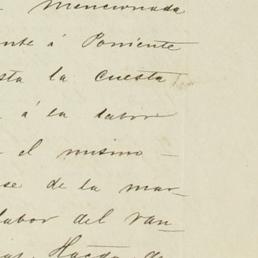 mencionada
ente á Poniente
sta la cuesta
á la labor
el mismo —
se de la mar-
labor del ran-
Hacda. de